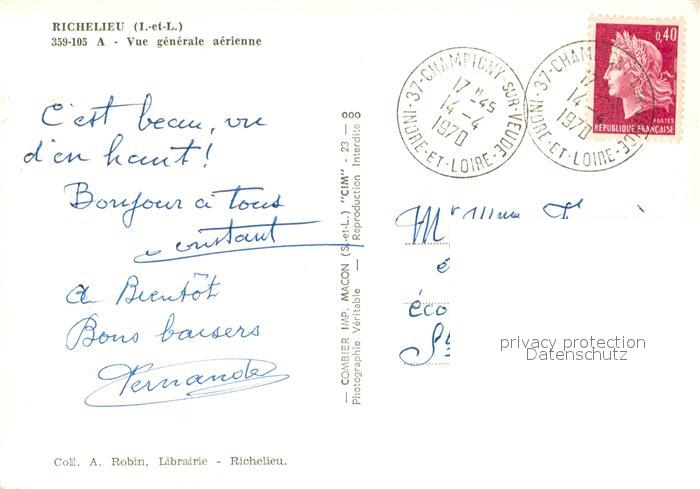 RICHELIEU (I.-et-L.)
359-105 A - Vue générale aérienne
C'est beau, vu
d'en haut!
Bonjour à tous
constant
à Bientôt
Bons baisers
Fernande
Coll. A. Robin, Librairie - Richelieu.
— COMBIER IMP. MACON (S.-et-L.) "CIM" - 23 — ooo
Photographie Véritable — Reproduction Interdite
37-CHAMPIGNY-SUR-VEUDE
17 H 45
14-4
1970
INDRE-ET-LOIRE
37-CHAM
17
14-4
1970
INDRE-ET-LOIRE
0,40
POSTES
REPUBLIQUE FRANÇAISE
Mr Mme
éco
privacy protection
Datenschutz